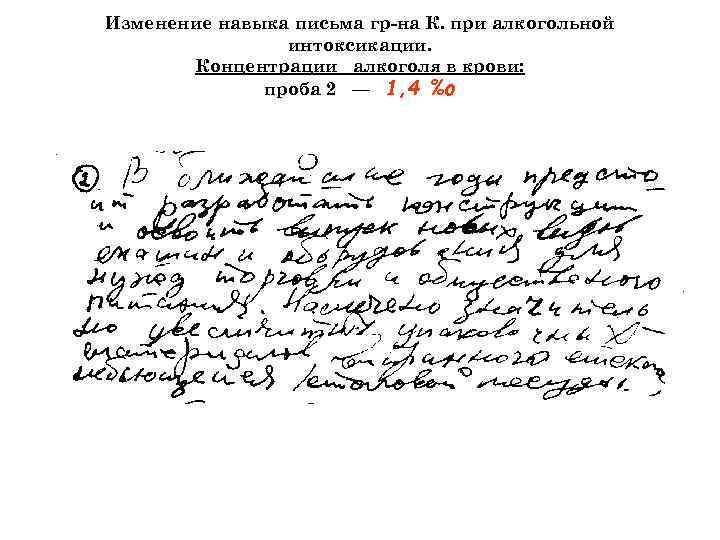 Изменение навыка письма гр-на К. при алкогольной
интоксикации.
Концентрации алкоголя в крови:
проба 2 — 1,4 ‰
② В ближайшие годы предсто-
ит разработать конструкции
и освоить выпуск новых видов
машин и оборудования для
нужд торговли и общественного
питания. Намечено значитель-
но увеличить упаковочных
материалов
небьющейся столовой посуды.